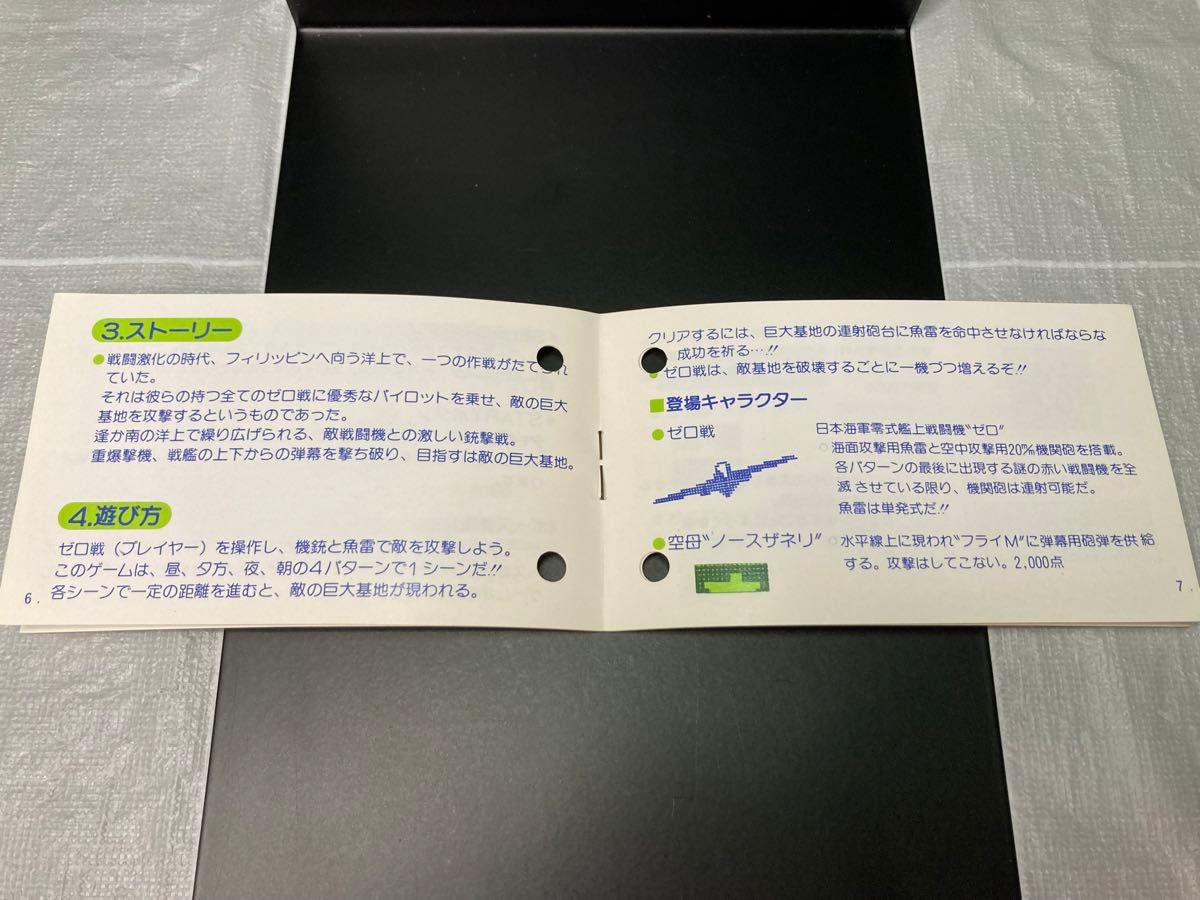 3.ストーリー
●戦闘激化の時代、フィリッピンへ向う洋上で、一つの作戦がたてられ
ていた。
それは彼らの持つ全てのゼロ戦に優秀なパイロットを乗せ、敵の巨大
基地を攻撃するというものであった。
逢か南の洋上で繰り広げられる、敵戦闘機との激しい銃撃戦。
重爆撃機、戦艦の上下からの弾幕を撃ち破り、目指すは敵の巨大基地。
4.遊び方
ゼロ戦(プレイヤー)を操作し、機銃と魚雷で敵を攻撃しよう。
このゲームは、昼、夕方、夜、朝の4パターンで1シーンだ!!
各シーンで一定の距離を進むと、敵の巨大基地が現われる。
6.
クリアするには、巨大基地の連射砲台に魚雷を命中させなければならな
成功を祈る…!!
●ゼロ戦は、敵基地を破壊するごとに一機づつ増えるぞ!!
■登場キャラクター
●ゼロ戦
日本海軍零式艦上戦闘機"ゼロ"
○海面攻撃用魚雷と空中攻撃用20㎜機関砲を搭載。
各パターンの最後に出現する謎の赤い戦闘機を全
滅させている限り、機関砲は連射可能だ。
魚雷は単発式だ!!
●空母"ノースザネリ"
○水平線上に現われ"フライM"に弾幕用砲弾を供給
する。攻撃はしてこない。2,000点
7.